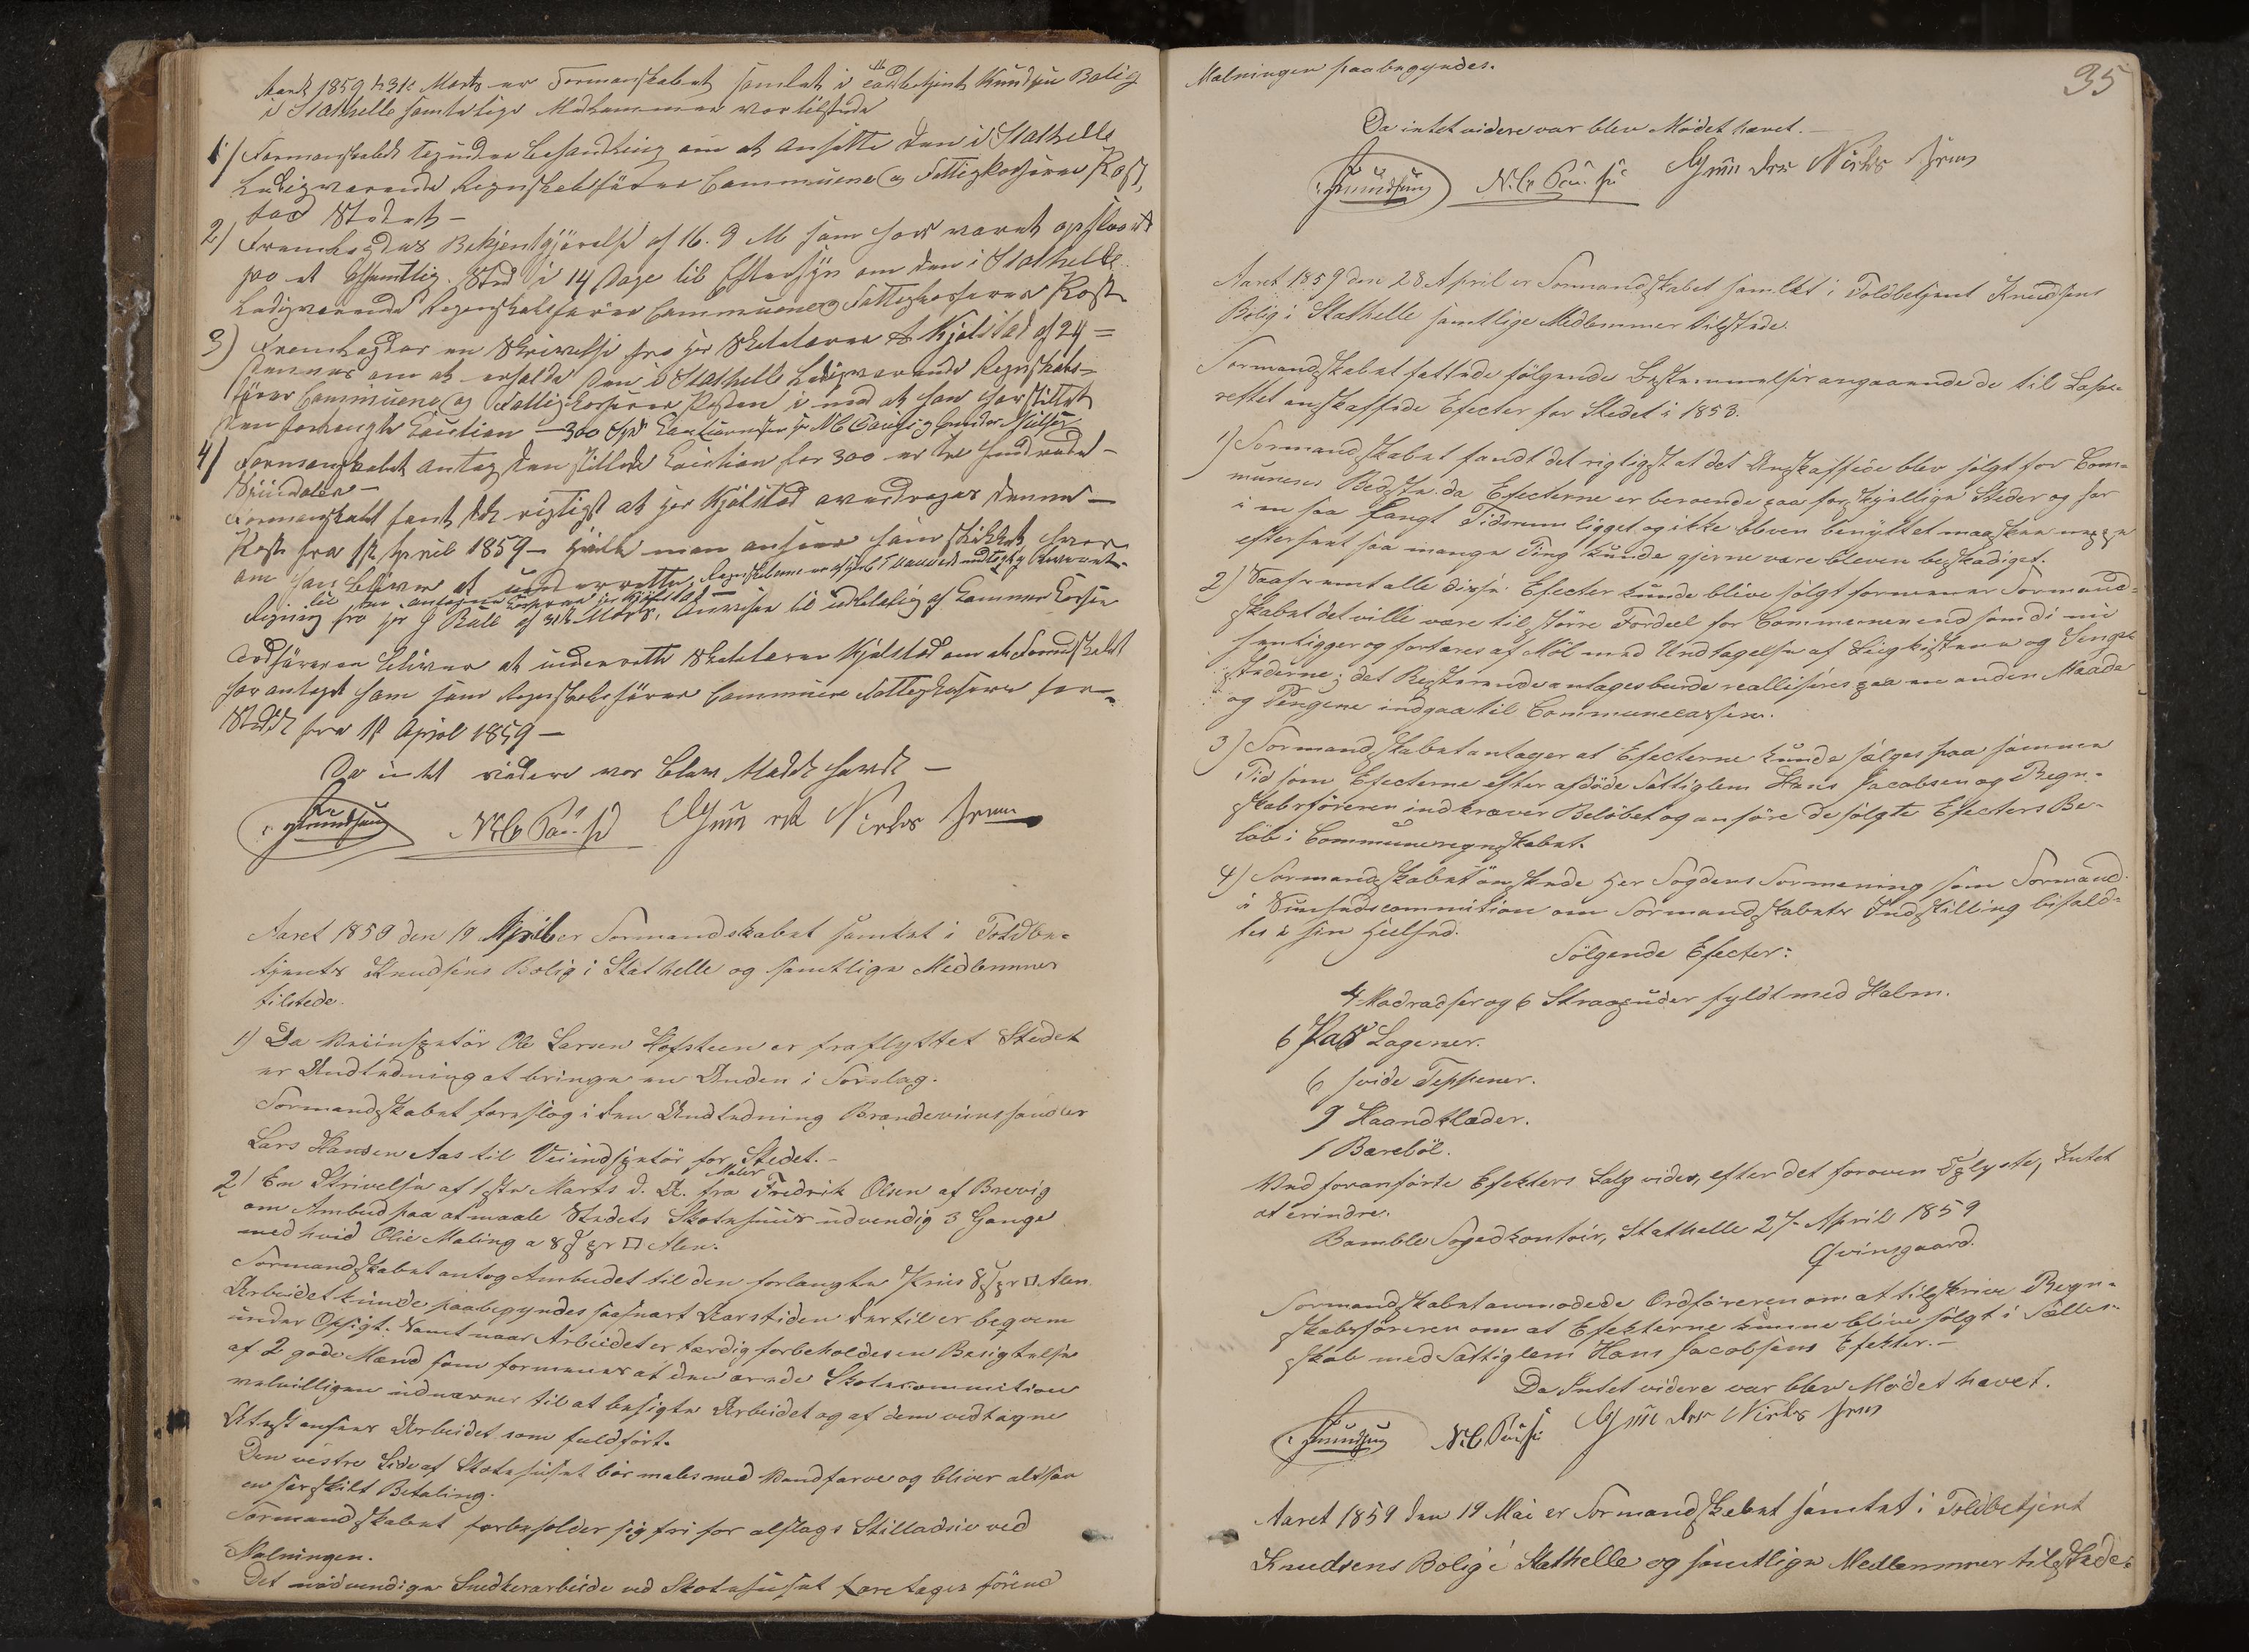 Aaret 1859 d 31te Marts er Formanskabet samlet i Toldbetjent Knudsen Bolig
i Stathelle samtelige Medlemmer var tilstede
1/ Formanskabet tog under behandling om at ansette den i Stathelle
Ledigværende Regnskabsfører Commune og Fattigkasserer Post
for Stedet –
2/ Fremlagdes Bekjentgjørelse af 16. d M som har været opslaaet
paa et Offentlig Sted i 14 Dage til Eftersyn om den i Stathelle
Ledigværende Regnskabsfører Commune og Fattigkasserer Post
3) Fremlagdes en Skrivelse fra Hr Skolelærer Kjølstad af 24 =
dennes om at erholde den i Stathelle Ledigværende Regnskabs=
fører Commune og Fattigkasserer Posten i med at han har stillet
den forlangte Caution – 300 Spd
4/ Formanskabet antog den stillede Caution for 300 er tre hundrede –
Speciedaler –
Formanskabet fant det rigtigst at Hr Kjølstad overdrages denne –
Post fra 1st April 1859 – hvilke man anseer ham skikket hvor
om han bliver at underrette.
til den antagne Kasserer Hr Kjølstad –
Regning fra Hr J Rall af 31te Marts, Anvises til udbetaling af Commune Cassen
Ordføreren bliver at underrette Skolelærer Kjølstad om at Formdskabet
har antaget ham som Regnskabsfører Commune Fattigkasserer for –
Stedet fra 1st April 1859 –
Da intet videre var blev Mødet hævet –
Knudsen N. C. Gunder Nielsen

Aaret 1859 den 19 April er Formandskabet samlet i Toldbe=
tjents Knudsens Bolig i Stathelle og samtlige Medlemmer
tilstede.
1) Da Veiinspektør Ole Larsen Hofsteen er fraflyttet Stedet
er Andledning at bringe en Anden i Forslag.
Formandskabet foreslog i den Andledning Brændeviinshandler
Lars Hansen Aas til Veiindspektør for Stedet. –
2/ En Skrivelse af 1ste Marts d. A. fra Maler Fredrik Olsen af Brevig
om Ambud paa at maale Stedets Skolehuus udvendig 3 Gange
med hvid Olie Maling a 8 ß pr □ Alen.
Formandskabet antog Ambudet til den forlangte Priis 8 ß pr □ Alen.
Arbeidet kunde paabegyndes saasnart Aarstiden dertil er beqvem
under Opsigt. Samt naar Arbeidet er færdig forbeholdes en Besigtelse
af 2 gode Mænd som formenes at den ærede Skolecommition
velvilligen udnævner til at besigte Arbeidet og af dem vedtagne
Attest ansees Arbeidet som fuldført.
Den vestre Side af Skolehuset bør males med Vandfarve og bliver altsaa
en særskilt Betaling.
Formandskabet forbeholder sig fri for alslags Stilladsie ved
Malningen.
Det nødvendige Snedkerarbeide ved Skolehuset foretages førend
35
Malningen paabegyndes.
Da intet videre var blev Mødet hævet. –
Knudsen N. C. Gunder Nielsen

Aaret 1859 den 28 April er Formandskabet samlet i Toldbetjent Knudsens
Bolig i Stathelle samtlige Medlemmer tilstede.
Formandskabet fattede følgende Bestemmelser angaaende de til Lasa=
rettet anskaffede Efecter for Stedet i 1853.
1) Formandskabet fandt det rigtigst at det Anskaffede blev solgt for Com=
munens Bedste. da Efecterne er beroende paa forskjellige Steder og har
i en saa langt Tidsrum ligget og ikke bleven benyttet maaskee
eftersaat saa mange Ting kunde gjerne være bleven beskadiget.
2) Saafremt alle disse Efecter kunde blive solgt formener Formand=
skabet det ville være til større Fordeel for Communen end som de nu
henligger og fortæres af Møl med Undtagelse af Liigkisterne og Senge
stederne; det Resterende antages burde realliseres paa en anden Maade
og Pengene indgaa til Communecassen.
3) Formandskabet antager at Efecterne kunde sælges paa samme
Tid som Efecterne efter afdøde Fattiglem Hans Jacobsen og Regn=
skabsføreren indkræver Beløbet og anføre de solgte Efecters Be=
løb i Communeregnskabet.
4) Formandskabet ønskede Her Fogdens Formening som Formand
i Sunhedscommition om Formandskabets Indstilling bifald=
tes i sin Heelhed.
Følgende Efecter:
4 Madradser og 6 Straapuder fyldt med Halm.
6 Par Lagener.
6 hvide Teppener.
9 Haandklæder.
1 Barebøl.
Ved foranførte Efekters Salg vides, efter det foroven Oplyste, Intet
at erindre.
Bamble Fogedkontoir, Stathelle 27 April 1859
Qvinsgaard.
Formandskabet anmodede Ordføreren om at tilskrive Regn=
skabsføreren om at Efekterne kunne blive solgt i Fælles=
skab med Fattiglem Hans Jacobsens Efekter. –
Da Intet videre var blev Mødet hævet.
Knudsen N. C. Gunder Nielsen

Aaret 1859 den 19 Mai er Formandskabet samlet i Toldbetjent
Knudsens Bolig i Stathelle og samtlige Medlemmer tilstede.